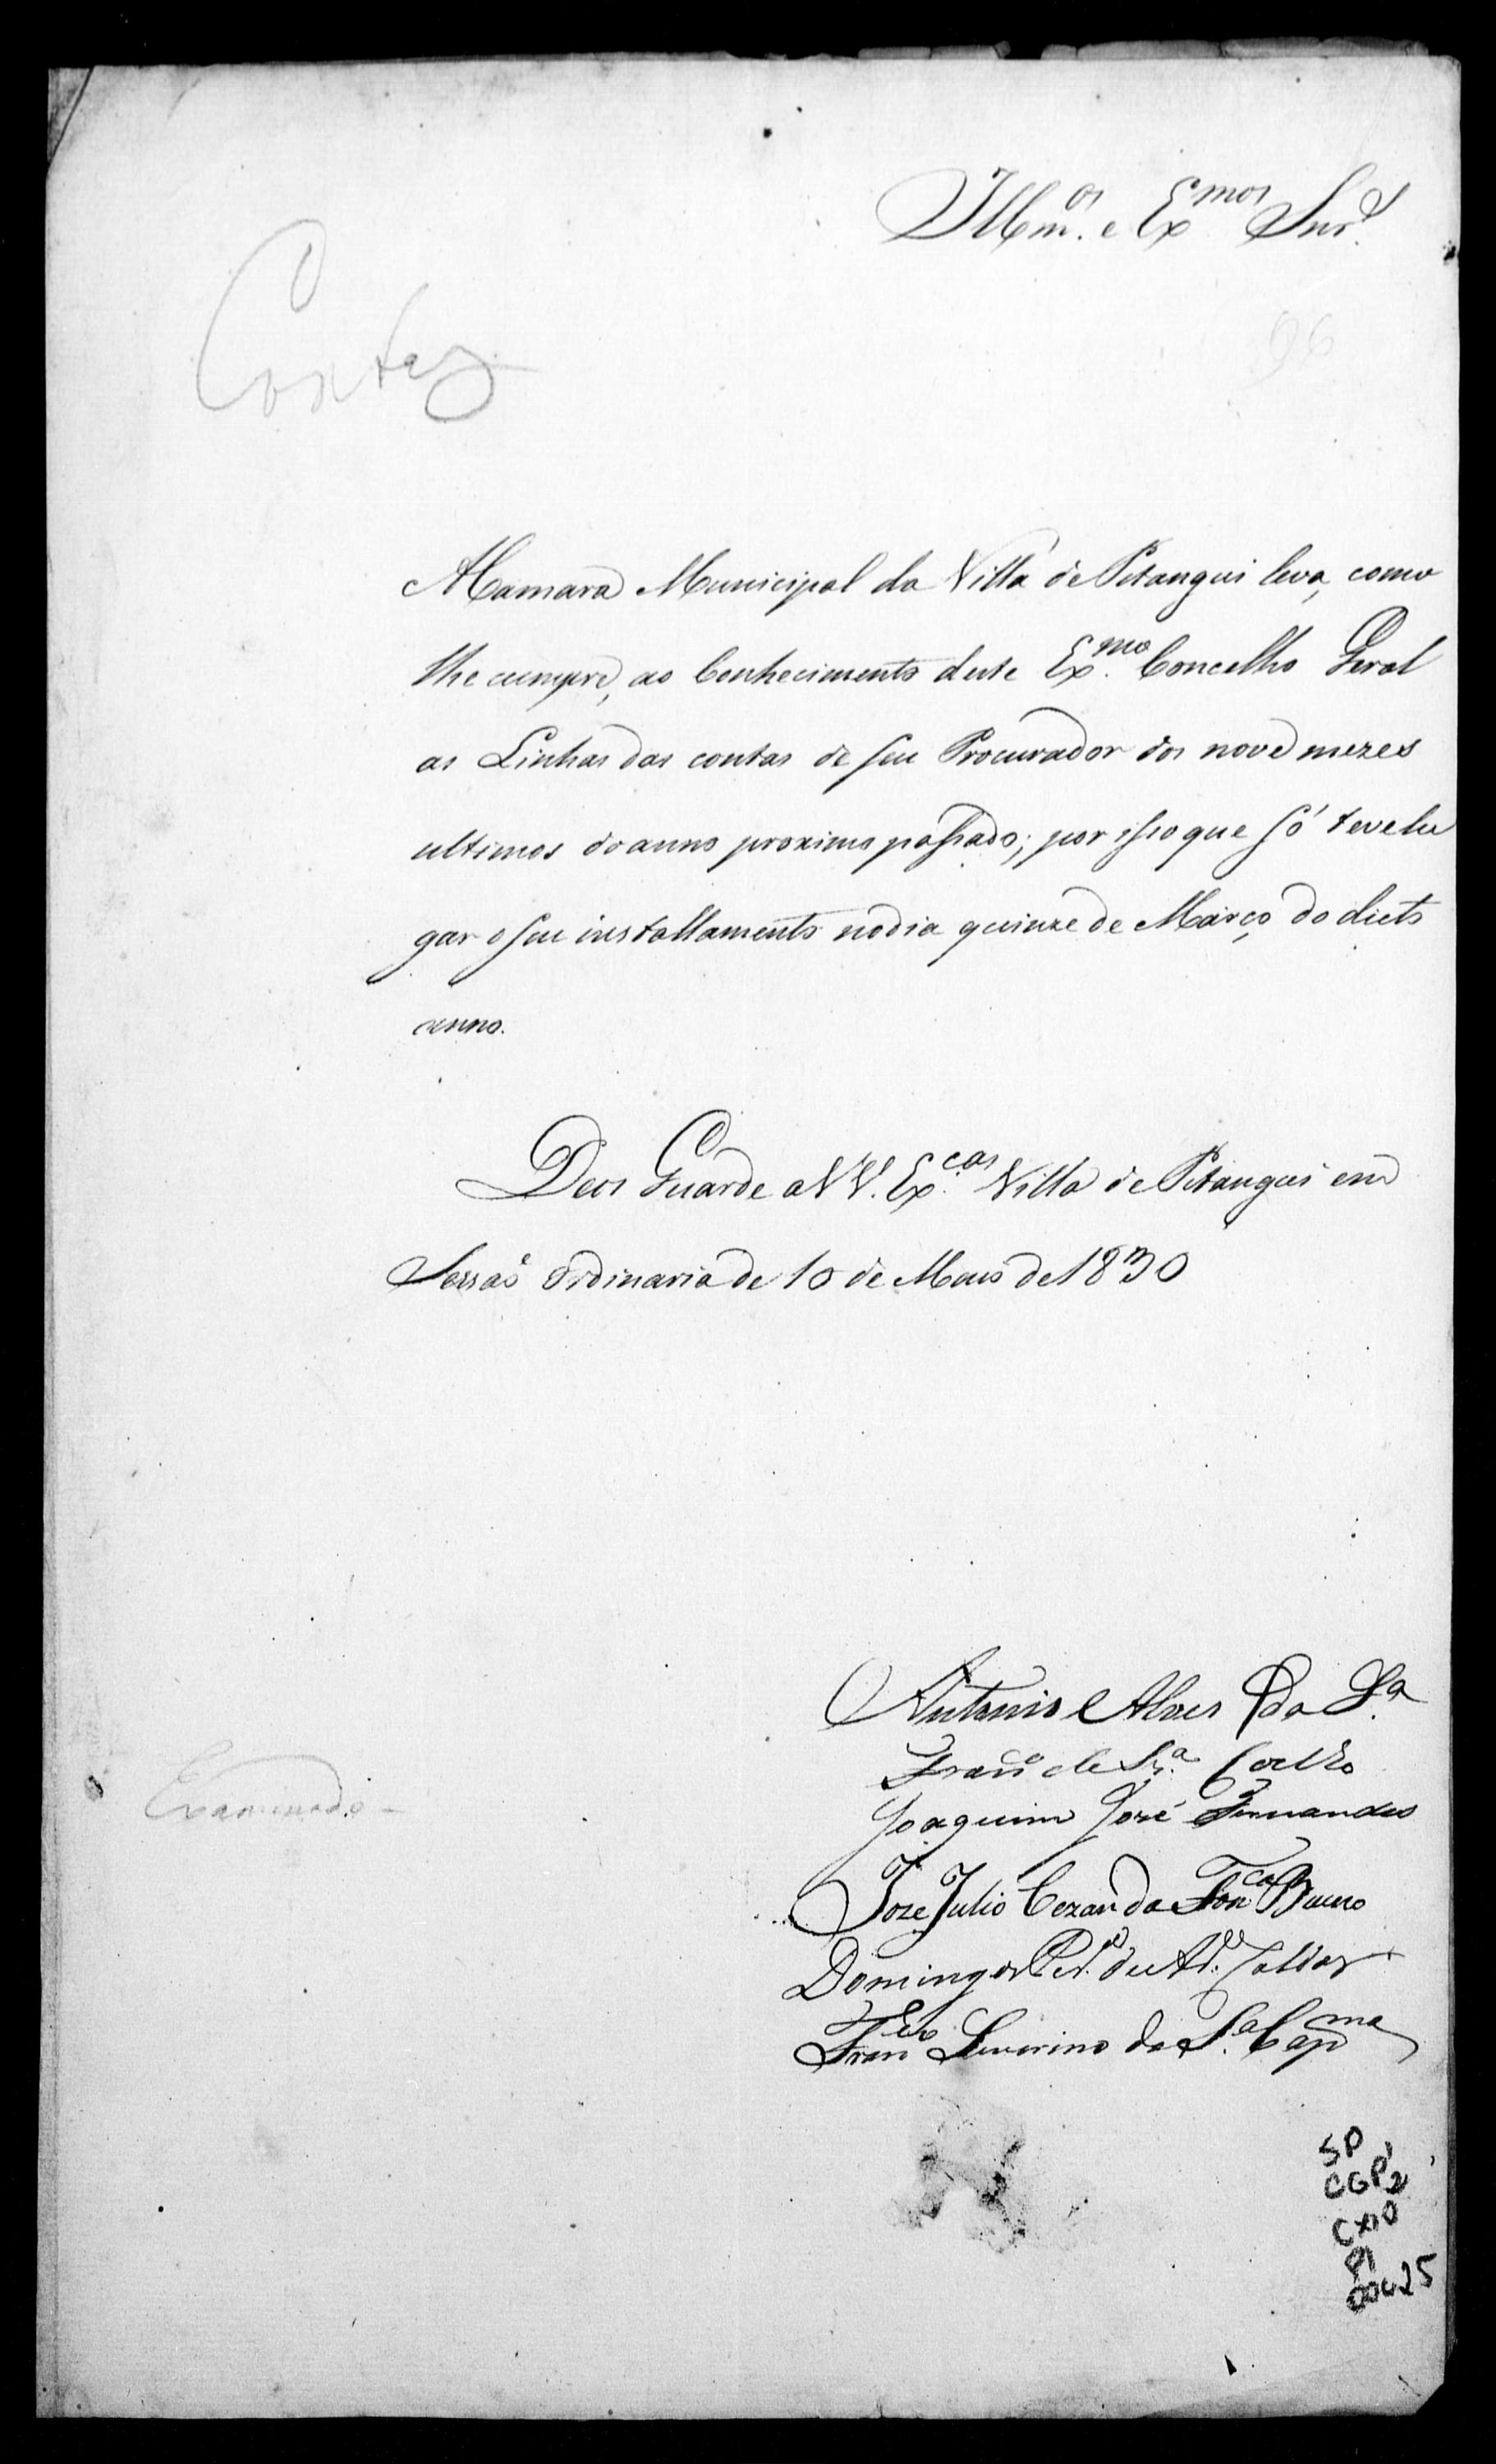 Illm.os e Ex.mos Snr.s
Contas
96
A Camara Municipal da Villa de Pitangui leva, como
lhe cumpre, ao Conhecimento deste Ex.mo Concelho Geral
as Linhas das contas de seu Procurador dos nove mezes
ultimos do anno proximo passado; por isso que só teve lu
gar o seu installamento no dia quinze de Março do dicto
anno.
Deos Guarde a VV. Ex.cas Villa de Pitangui em
Sessaõ Ordinaria de 10 de Maio de 1830
Antonio Alves da S.a
Fran.co de Sz.a Coelho
Joaquim José Fernandes
Examinado
Joze Julio Cezar da Fon.ca Bueno
Domingos de
Fran.co Severino da S.a
SP
CGP 2
CX10
P1
00425